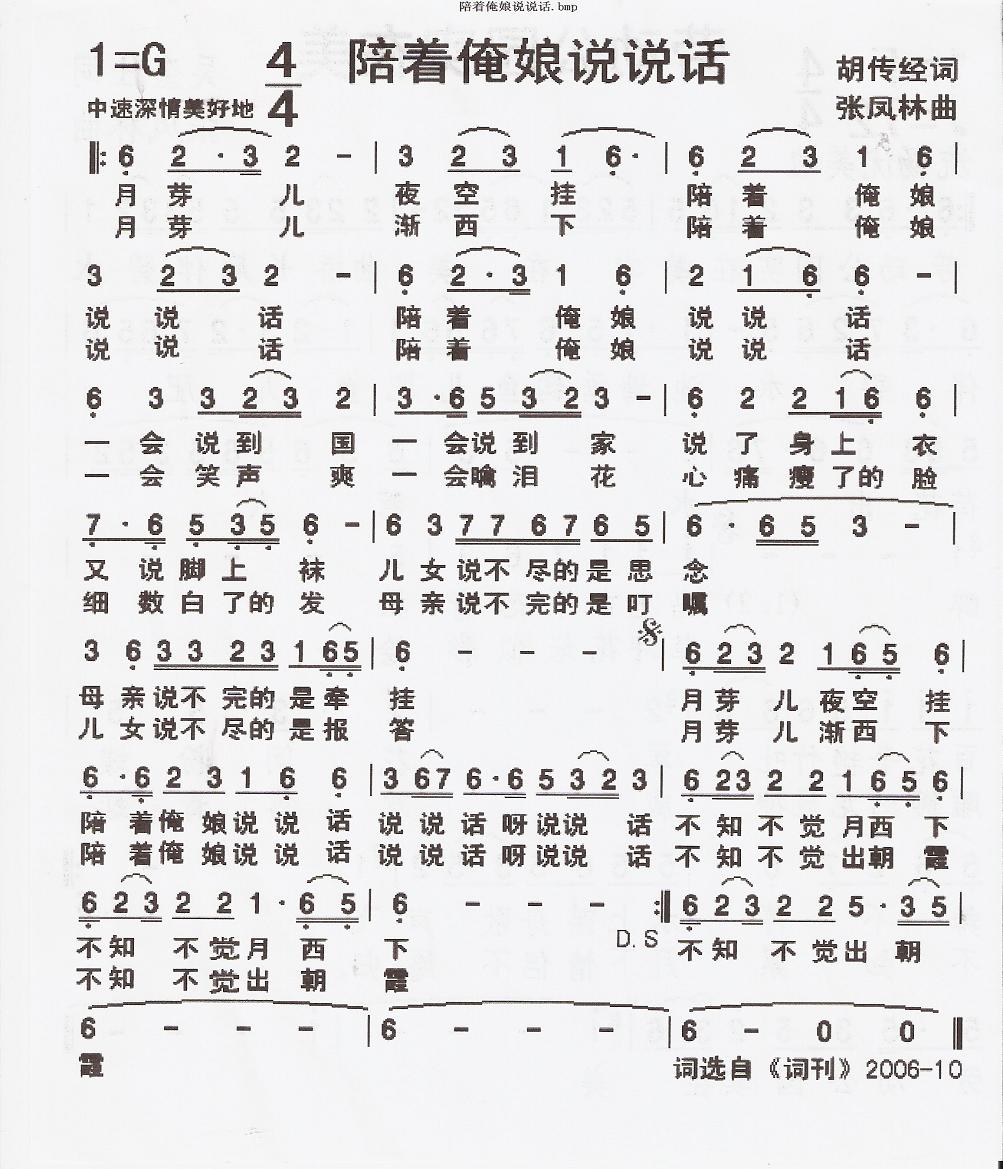 陪着俺娘说说话.bmp
1=G 4/4 陪着俺娘说说话 胡传经词
中速深情美好地 张凤林曲
‖: 6 2 · 3 2 - | 3 2 3 1 6 · | 6 2 3 1 6 |
月 芽 儿 夜 空 挂 陪 着 俺 娘
月 芽 儿 渐 西 下 陪 着 俺 娘
3 2 3 2 - | 6 2 · 3 1 6 | 2 1 6 6 - |
说 说 话 陪 着 俺 娘 说 说 话
说 说 话 陪 着 俺 娘 说 说 话
6 3 3 3 2 3 2 | 3 · 6 5 3 3 2 3 - | 6 2 2 1 6 6 |
一 会 说 到 国 一 会 说 到 家 说 了 身 上 衣
一 会 笑 声 爽 一 会 噙 泪 花 心 痛 瘦 了 的 脸
7 · 6 5 3 5 6 - | 6 3 7 7 6 7 6 5 | 6 · 6 5 3 - |
又 说 脚 上 袜 儿 女 说 不 尽 的 是 思 念
细 数 白 了 的 发 母 亲 说 不 完 的 是 叮 嘱
3 6 3 3 2 3 1 6 5 | 6 - - - | 6 2 3 2 1 6 5 6 |
母 亲 说 不 完 的 是 牵 挂 月 芽 儿 夜 空 挂
儿 女 说 不 尽 的 是 报 答 月 芽 儿 渐 西 下
6 · 6 2 3 1 6 6 | 3 6 7 6 · 6 5 3 2 3 | 6 2 3 2 2 1 6 5 6 |
陪 着 俺 娘 说 说 话 说 说 话 呀 说 说 话 不 知 不 觉 月 西 下
陪 着 俺 娘 说 说 话 说 说 话 呀 说 说 话 不 知 不 觉 出 朝 霞
6 2 3 2 2 1 · 6 5 | 6 - - - :‖ 6 2 3 2 2 5 · 3 5 |
D.S
不 知 不 觉 月 西 下 不 知 不 觉 出 朝
不 知 不 觉 出 朝 霞
6 - - - | 6 - - - | 6 - 0 0 ‖
霞 词选自《词刊》2006-10